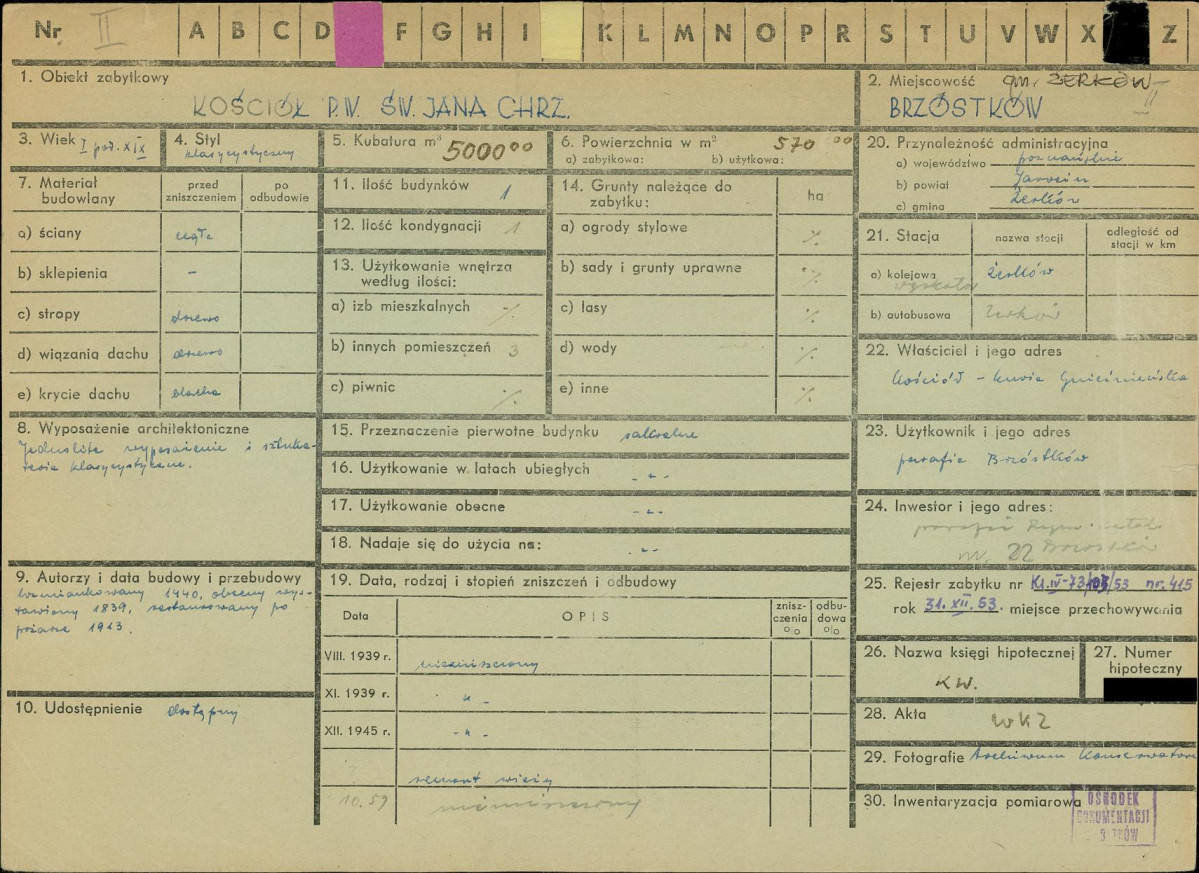 Nr II A B C D F G H I K L M N O P R S T U V W X Z
1. Obiekt zabytkowy
KOŚCIÓŁ P.W. ŚW. JANA CHRZ.
2. Miejscowość gm. ŻERKÓW
II
BRZÓSTKÓW
3. Wiek I poł. XIX
4. Styl
klasycystyczny
5. Kubatura m³ 5000 00
6. Powierzchnia w m² 570 00
a) zabytkowa: b) użytkowa:
7. Materiał budowlany
przed zniszczeniem
po odbudowie
a) ściany cegła
b) sklepienia –
c) stropy drzewo
d) wiązania dachu drzewo
e) krycie dachu blacha
8. Wyposażenie architektoniczne
Jednolite wyposażenie i sztuka-
teria klasycystyczne.
9. Autorzy i data budowy i przebudowy
wzmiankowany 1440, obecny wys-
tawiony 1839, restaurowany po
pożarze 1913.
10. Udostępnienie dostępny
11. Ilość budynków 1
12. Ilość kondygnacji 1
13. Użytkowanie wnętrza
według ilości:
a) izb mieszkalnych ·/.
b) innych pomieszczeń 3
c) piwnic ·/.
14. Grunty należące do
zabytku:
ha
a) ogrody stylowe ·/.
b) sady i grunty uprawne ·/.
c) lasy ·/.
d) wody ·/.
e) inne ·/.
15. Przeznaczenie pierwotne budynku sakralne
16. Użytkowanie w latach ubiegłych - " -
17. Użytkowanie obecne - " -
18. Nadaje się do użycia na: - " -
19. Data, rodzaj i stopień zniszczeń i odbudowy
Data
OPIS
znisz-
czenia
%
odbu-
dowa
%
VIII. 1939 r. niezniszczony
XI. 1939 r. " -
XII. 1945 r. - " -
remont wieży
10.59 niezniszczony
20. Przynależność administracyjna
a) województwo poznańskie
b) powiat Jarocin
c) gmina Żerków
21. Stacja
nazwa stacji
odległość od
stacji w km
a) kolejowa Żerków
b) autobusowa Żerków
22. Właściciel i jego adres
Kościół – kuria Gnieźnieńska
23. Użytkownik i jego adres
parafia Brzóstków
24. Inwestor i jego adres:
parafii Rzym. katol.
nr. 22 Brzostków
25. Rejestr zabytku nr Kl.IV-73/103/53 nr. 415
rok 31. XII. 53. miejsce przechowywania
26. Nazwa księgi hipotecznej
KW.
27. Numer
hipoteczny
28. Akta WKZ
29. Fotografie Archiwum Konserwatora
30. Inwentaryzacja pomiarowa
OŚRODEK
DOKUMENTACJI